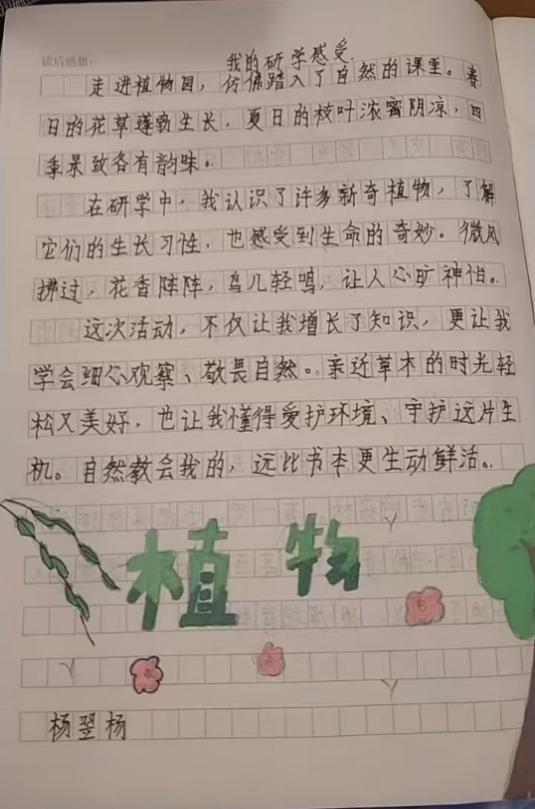 读后感想:
我的研学感受.
走进植物园，仿佛踏入了自然的课堂。春
日的花草蓬勃生长，夏日的枝叶浓密阴凉，四
季景致各有韵味。
在研学中，我认识了许多新奇植物，了解
它们的生长习性，也感受到生命的奇妙。微风
拂过，花香阵阵，鸟儿轻鸣，让人心旷神怡。
这次活动，不仅让我增长了知识，更让我
学会细心观察、敬畏自然。亲近草木的时光轻
松又美好，也让我懂得爱护环境、守护这片生
机。自然教会我的，远比书本更生动鲜活。
植物
杨翌杨